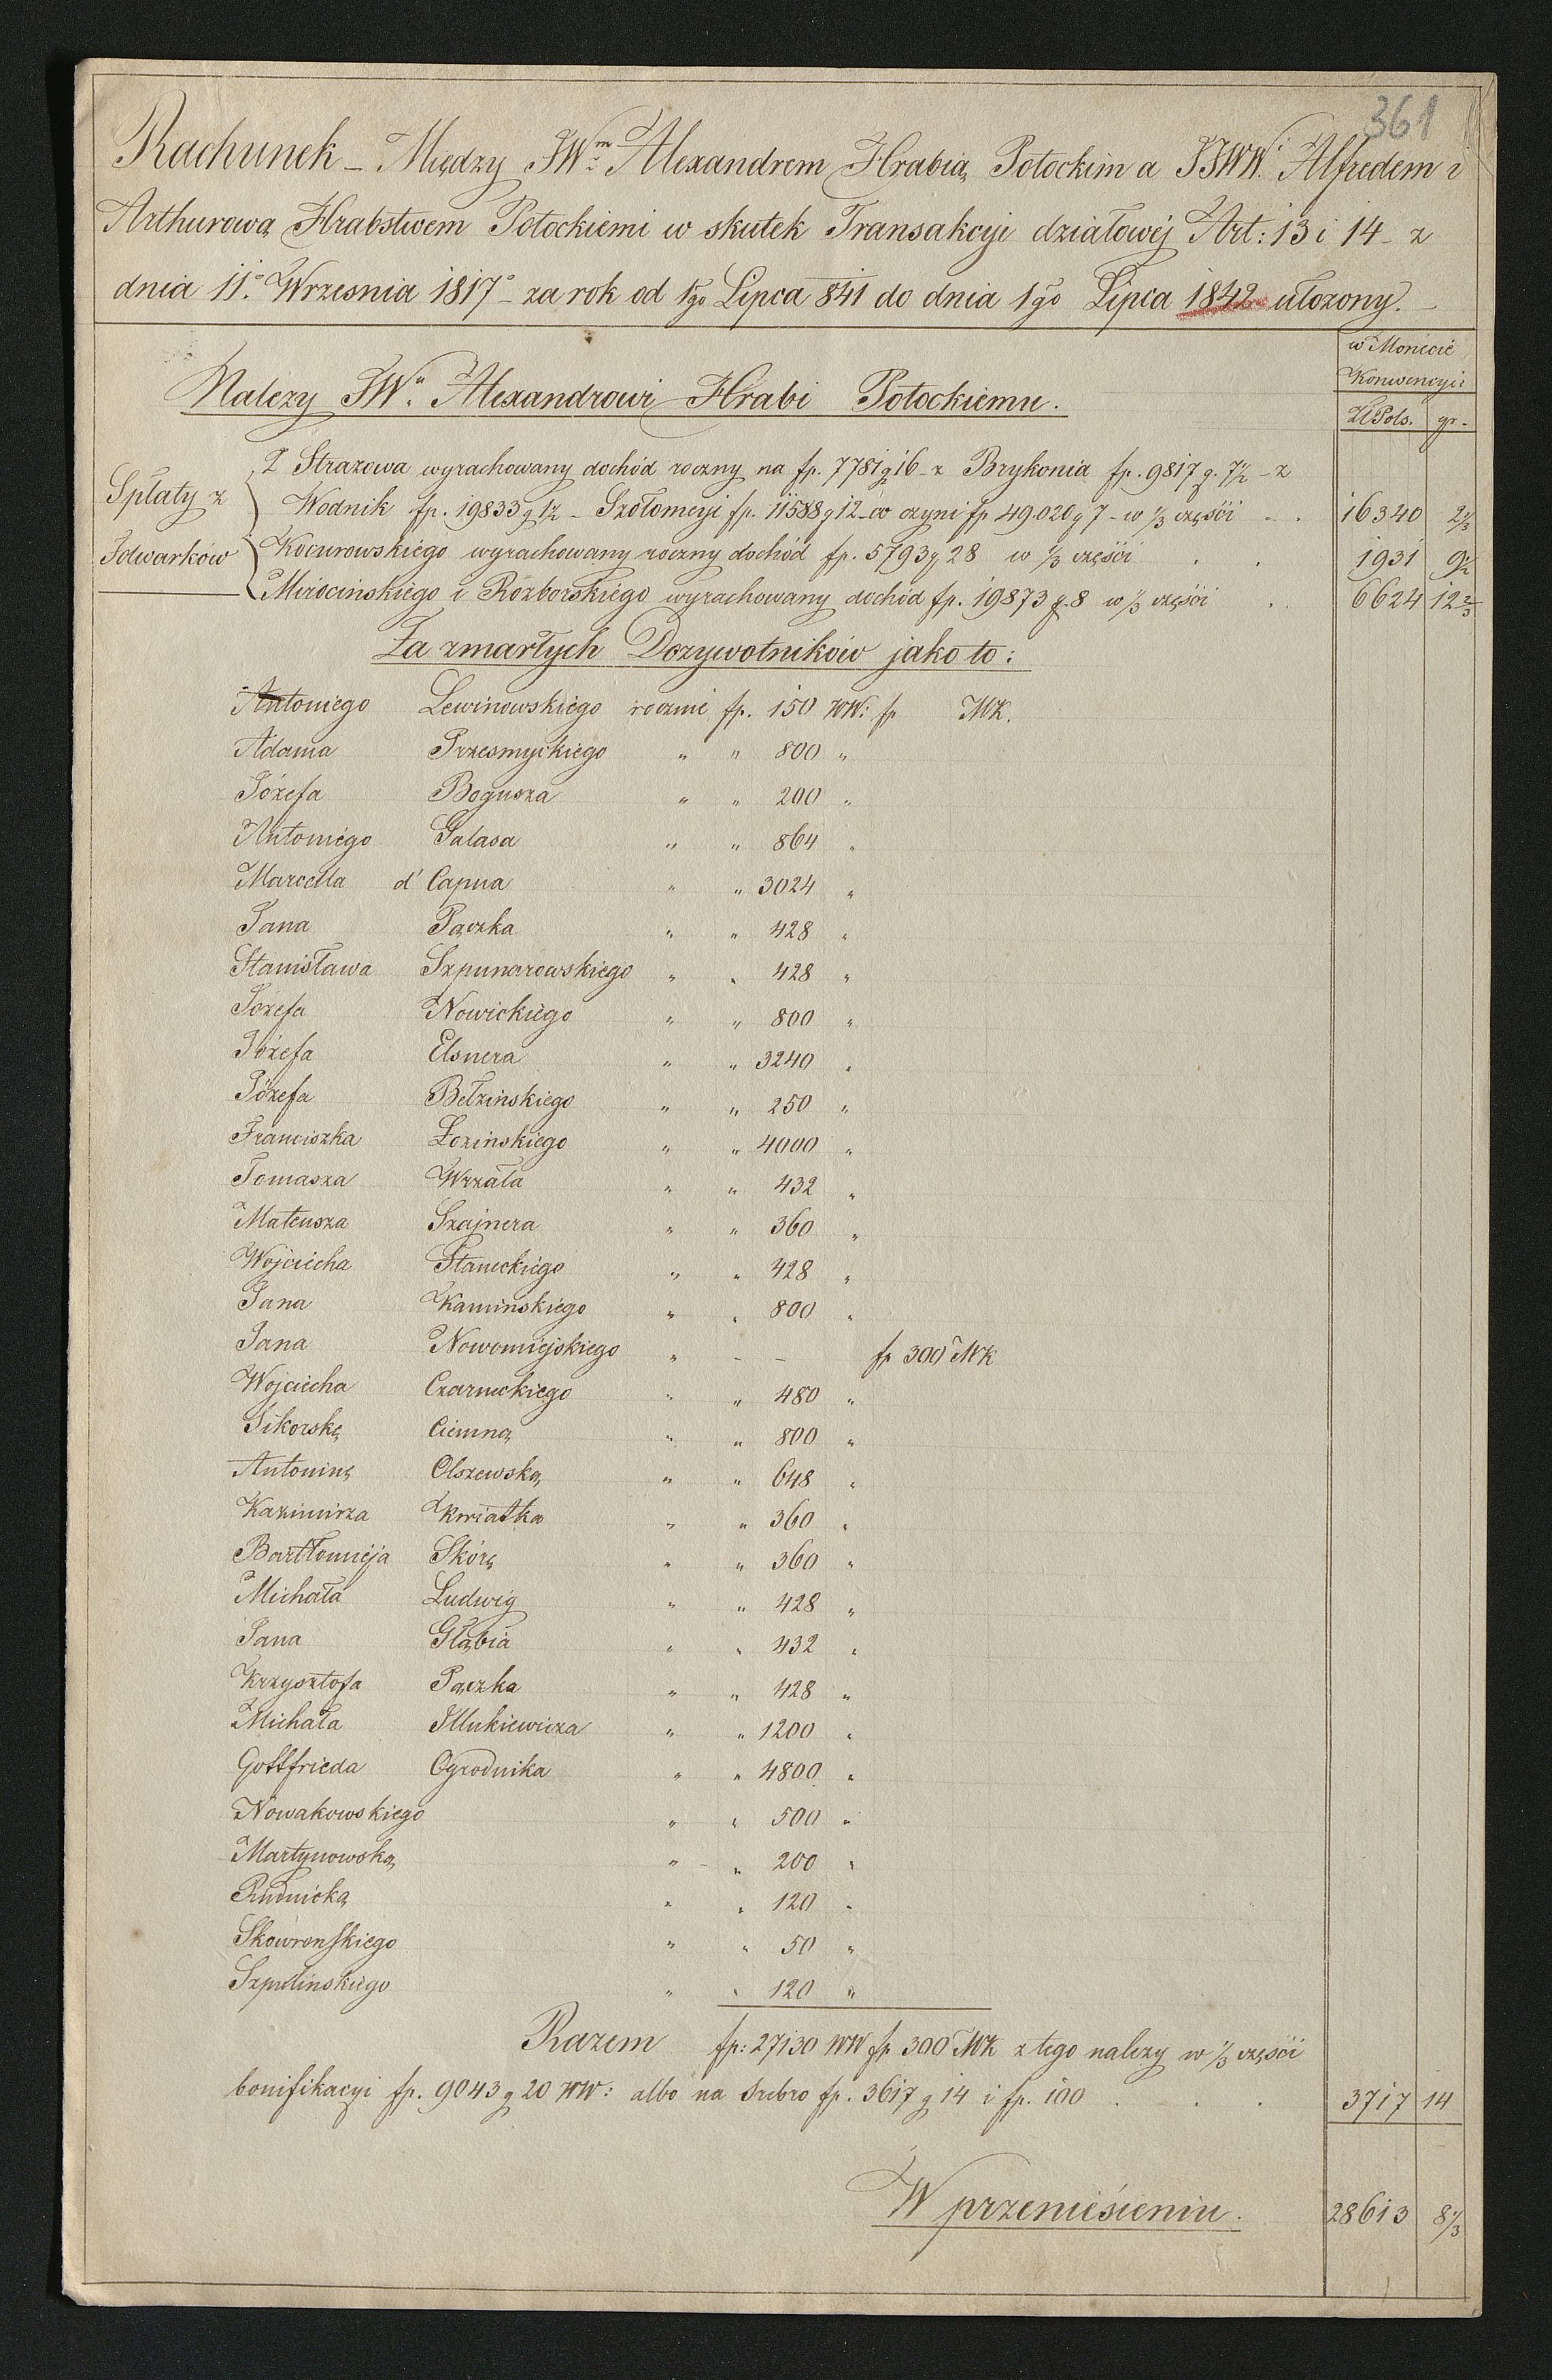 361
Rachunek – Między JWm Alexandrem Hrabią Potockim a JJWW. Alfredem i
Arthurową Hrabstwem Potockiemi w skutek Transakcyi działowéj Art: 13 i 14 – z
dnia 11o Wrzesnia 1817o – za rok od 1go Lipca 841 do dnia 1go Lipca 1842 ułozony. –
w Monecie
Konwencyi:
Należy JWu Alexandrowi Hrabi Potockiemu.
ZłPols. gr.
Z Strazowa wyrachowany dochód roczny na fp. 7781 g 16 – z Brykonia fp. 9817 g. 7½ – z
Spłaty z Wodnik fp. 19833 g 1½ – Szołomcyi fp. 11588 g 12 – co czyni fp 49.020 g 7 – w ⅓ częsci . . 16340 2⅓
Folwarków Kocurowskiego wyrachowany roczny dochód fp. 5793 g 28 w ⅓ częsci . . 1931 9½
Mirocinskiego i Rozborskiego wyrachowany dochód fp. 19873 g. 8 w ⅓ częsci . . 6624 12⅔
Za zmarłych Dozywotników jako to:
Antoniego Lewinowskiego rocznie fp. 150 WW: fp MK.
Adama Przesmyckiego " " 800 "
Józefa Bogusza " " 200 "
Antoniégo Galasa " " 864 "
Marcella d' Capua " " 3024 "
Jana Pączka " " 428 "
Stanisława Szpunarowskiego " " 428 "
Józefa Nowickiego " " 800 "
Józefa Elsnera " " 3240 "
Józefa Bełzinskiego " " 250 "
Franciszka Łozinskiego " " 4000 "
Tomasza Wrzała " " 432 "
Mateusza Szajnera " " 360 "
Wojciecha Staneckiego " " 428 "
Jana Kaminskiego " " 800 "
Jana Nowomiejskiego " – – fp 300 MK
Wojciecha Czarneckiego " " 480 "
Sikorską Ciemną " " 800 "
Antoninę Olszewską " " 648 "
Kazimirza Kwiatka " " 360 "
Bartłomieja Skórę " " 360 "
Michała Ludwig " " 428 "
Jana Głąbia " " 432 "
Krzysztofa Pączka " " 428 "
Michała Illukiewicza " " 1200 "
Gottfrieda Ogrodnika " " 4800 "
Nowakowskiego " " 500 "
Martynowską " " 200 "
Rudnicką " " 120 "
Skowronskiego " " 50 "
Szpulinskiego " " 120 "
Razem fp: 27130 WW fp 300 MK z tego nalezy w ⅓ częsci
bonifikacyi fp. 9043 g 20 WW: albo na srebro fp. 3617 g 14 i fp. 100 . . . 3717 14
W przeniesieniu. 28613 8⅓